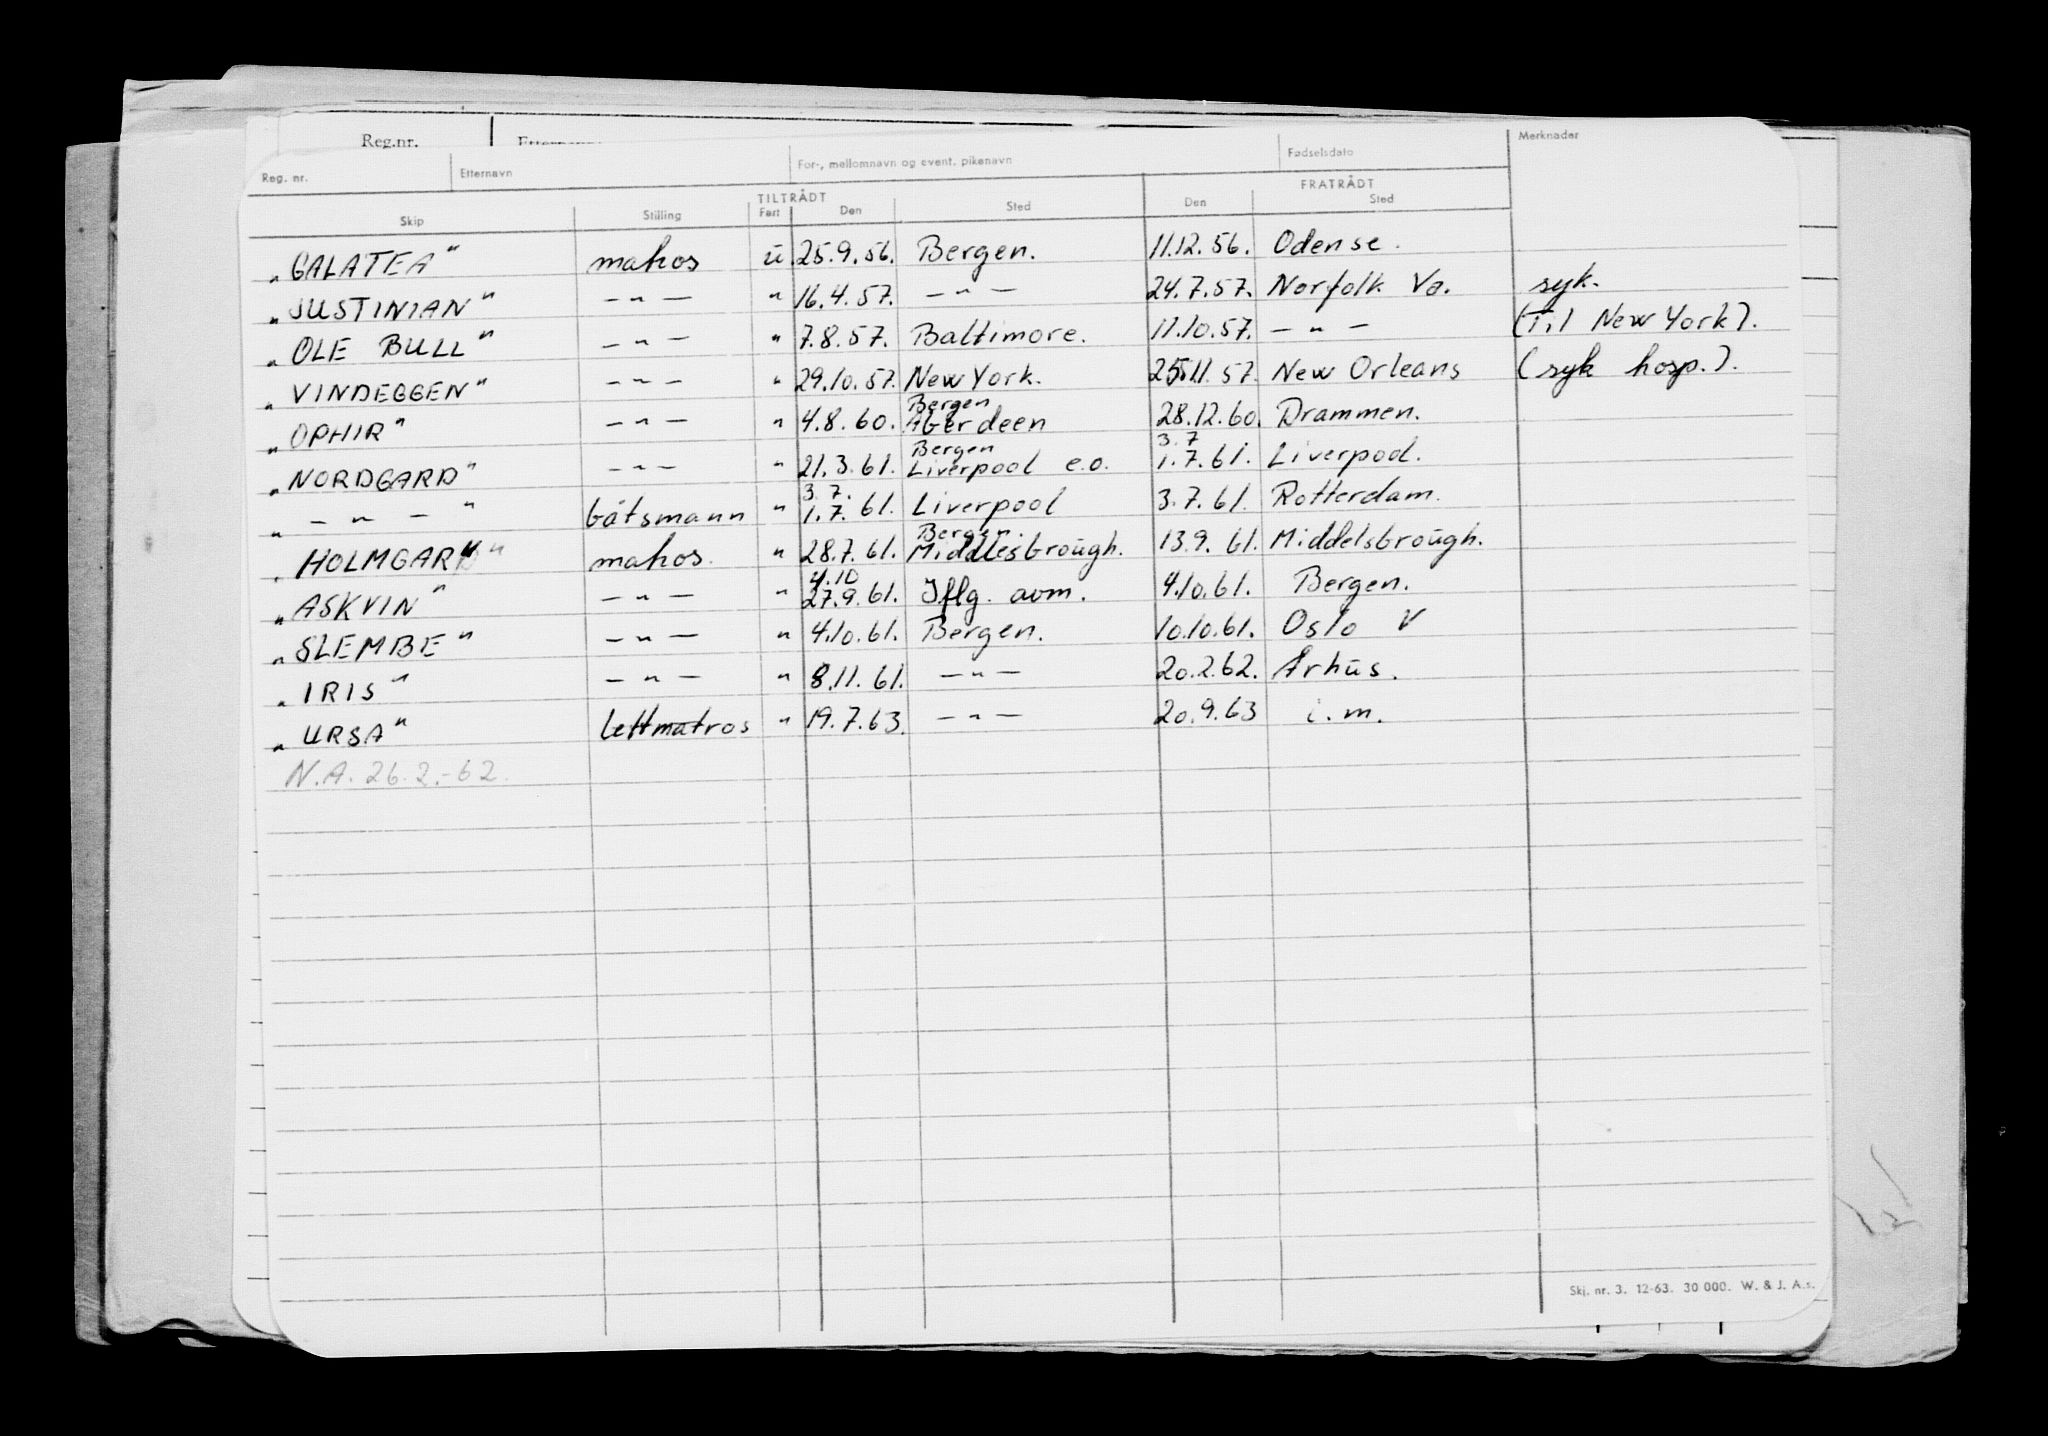 Reg.nr. Etternavn
Merknader
Reg. nr. Etternavn For-, mellomnavn og event. pikenavn Fødselsdato
TILTRÅDT FRATRÅDT
Skip Stilling Fart Den Sted Den Sted
„GALATEA" matros u. 25.9.56. Bergen. 11.12.56. Odense.
„JUSTINIAN" — " — " 16.4.57. — " — 24.7.57. Norfolk Va. syk.
„OLE BULL" — " — " 7.8.57. Baltimore. 11.10.57. — " — (Til New York).
„VINDEGGEN" — " — " 29.10.57. New York. 25.11.57. New Orleans (syk hosp.).
Bergen
„OPHIR" — " — " 4.8.60. Aberdeen 28.12.60. Drammen.
Bergen 3.7
„NORDGARD" — " — " 21.3.61. Liverpool e.o. 1.7.61. Liverpool.
3.7.
„ — " — " båtsmann " 1.7.61. Liverpool 3.7.61. Rotterdam.
Bergen.
„HOLMGARD" matros. " 28.7.61. Middlesbrough. 13.9.61. Middelsbrough.
4.10
„ASKVIN" — " — " 27.9.61. Iflg. avm. 4.10.61. Bergen.
„SLEMBE" — " — " 4.10.61. Bergen. 10.10.61. Oslo V
„IRIS" — " — " 8.11.61. — " — 20.2.62. Århus.
„URSA" lettmatros " 19.7.63. — " — 20.9.63 i.m.
N.A. 26.2.-62.
Skj. nr. 3. 12-63. 30 000. W. & J. A.s.